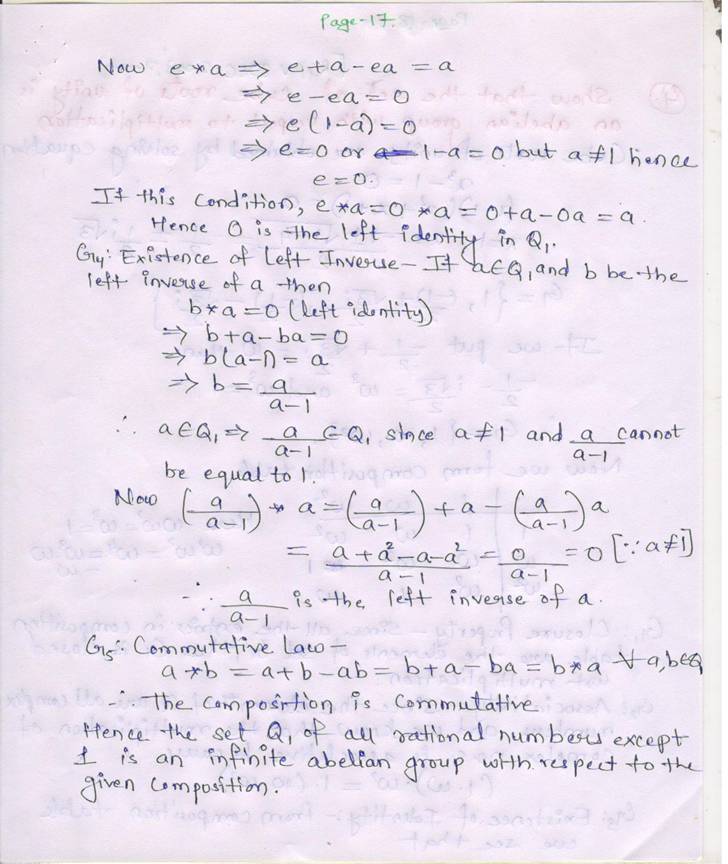 Page-17.
Now e * a ⇒ e + a - ea = a
⇒ e - ea = 0
⇒ e (1-a) = 0
⇒ e=0 or 1-a = 0 but a ≠ 1 hence
e = 0
If this condition, e * a = 0 * a = 0 + a - 0a = a.
Hence 0 is the left identity in Q₁.
G₄: Existence of Left Inverse - If a∈Q₁ and b be the
left inverse of a then
b * a = 0 (left identity)
⇒ b + a - ba = 0
⇒ b(a-1) = a
⇒ b = a/(a-1)
∴ a∈Q₁ ⇒ a/(a-1) ∈ Q₁ since a ≠ 1 and a/(a-1) cannot
be equal to 1
Now (a/(a-1)) * a = (a/(a-1)) + a - (a/(a-1)) a
= (a + a² - a - a²)/(a-1) = 0/(a-1) = 0 [∵ a≠1]
∴ a/(a-1) is the left inverse of a.
G₅: Commutative law -
a * b = a + b - ab = b + a - ba = b * a ∀ a, b∈Q
∴ The composition is commutative.
Hence the set Q₁ of all rational numbers except
1 is an infinite abelian group with respect to the
given composition.